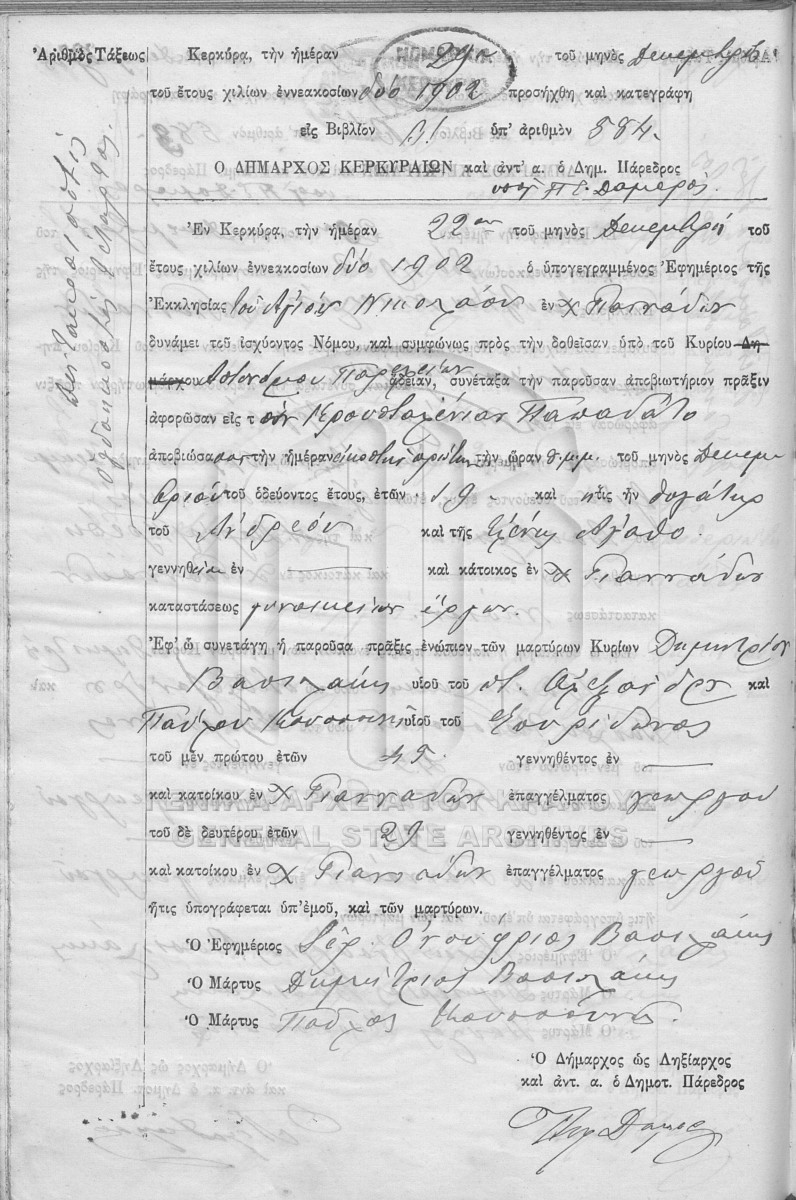 Ἀριθμὸς Τάξεως
Κερκύρᾳ, τὴν ἡμέραν 24 τοῦ μηνὸς Δεκεμβρίου
τοῦ ἔτους χιλίων ἐννεακοσίων δύο 1902 προσήχθη καὶ κατεγράφη
εἰς Βιβλίον Β! ὑπ' ἀριθμὸν 584.
Ο ΔΗΜΑΡΧΟΣ ΚΕΡΚΥΡΑΙΩΝ καὶ ἀντ' α. ὁ Δημ. Πάρεδρος
Ἐν Κερκύρᾳ, τὴν ἡμέραν 22αν τοῦ μηνὸς Δεκεμβρίου τοῦ
ἔτους χιλίων ἐννεακοσίων δύο 1902 ὁ ὑπογεγραμμένος Ἐφημέριος τῆς
Ἐκκλησίας τοῦ Ἁγίου Νικολάου ἐν χ Γιαννάδων
δυνάμει τοῦ ἰσχύοντος Νόμου, καὶ συμφώνως πρὸς τὴν δοθεῖσαν ὑπὸ τοῦ Κυρίου Δη
μάρχου Ἀστυνόμου ἄδειαν, συνέταξα τὴν παροῦσαν ἀποβιωτήριον πρᾶξιν
ἀφορῶσαν εἰς τὴν Κρουσταλένιαν Παπαδάτο
ἀποβιώσασας τὴν ἡμέραν εἰκοστὴν πρώτην τὴν ὥραν μ.μ. τοῦ μηνὸς Δεκεμ
βρίου τοῦ ὁδεύοντος ἔτους, ἐτῶν 19 καὶ ἥτις ἦν θυγάτηρ
τοῦ Ἀνδρέου καὶ τῆς Ἑλένης Ἀγαθο
γεννηθεῖσα ἐν καὶ κάτοικος ἐν χ Γιαννάδων
καταστάσεως γυναικείων ἔργων.
Ἐφ' ᾧ συνετάγη ἡ παροῦσα πρᾶξις ἐνώπιον τῶν μαρτύρων Κυρίων Δημητρίου
Βασιλάκης υἱοῦ τοῦ Ἀλεξάνδρου καὶ
Παύλου υἱοῦ τοῦ Σπυρίδωνος
τοῦ μὲν πρώτου ἐτῶν 45 γεννηθέντος ἐν
καὶ κατοίκου ἐν χ Γιαννάδων ἐπαγγέλματος γεωργοῦ
τοῦ δὲ δευτέρου ἐτῶν 29 γεννηθέντος ἐν
καὶ κατοίκου ἐν χ Γιαννάδων ἐπαγγέλματος γεωργοῦ
ἥτις ὑπογράφεται ὑπ' ἐμοῦ, καὶ τῶν μαρτύρων.
Ὁ Ἐφημέριος Ἱερ. Ὀνούφριος Βασιλάκης
Ὁ Μάρτυς Δημήτριος Βασιλάκης
Ὁ Μάρτυς Παῦλος
Ὁ Δήμαρχος ὡς Ληξίαρχος
καὶ ἀντ. α. ὁ Δημοτ. Πάρεδρος
ΓΕΝΙΚΑ ΑΡΧΕΙΑ ΤΟΥ ΚΡΑΤΟΥΣ
GENERAL STATE ARCHIVES